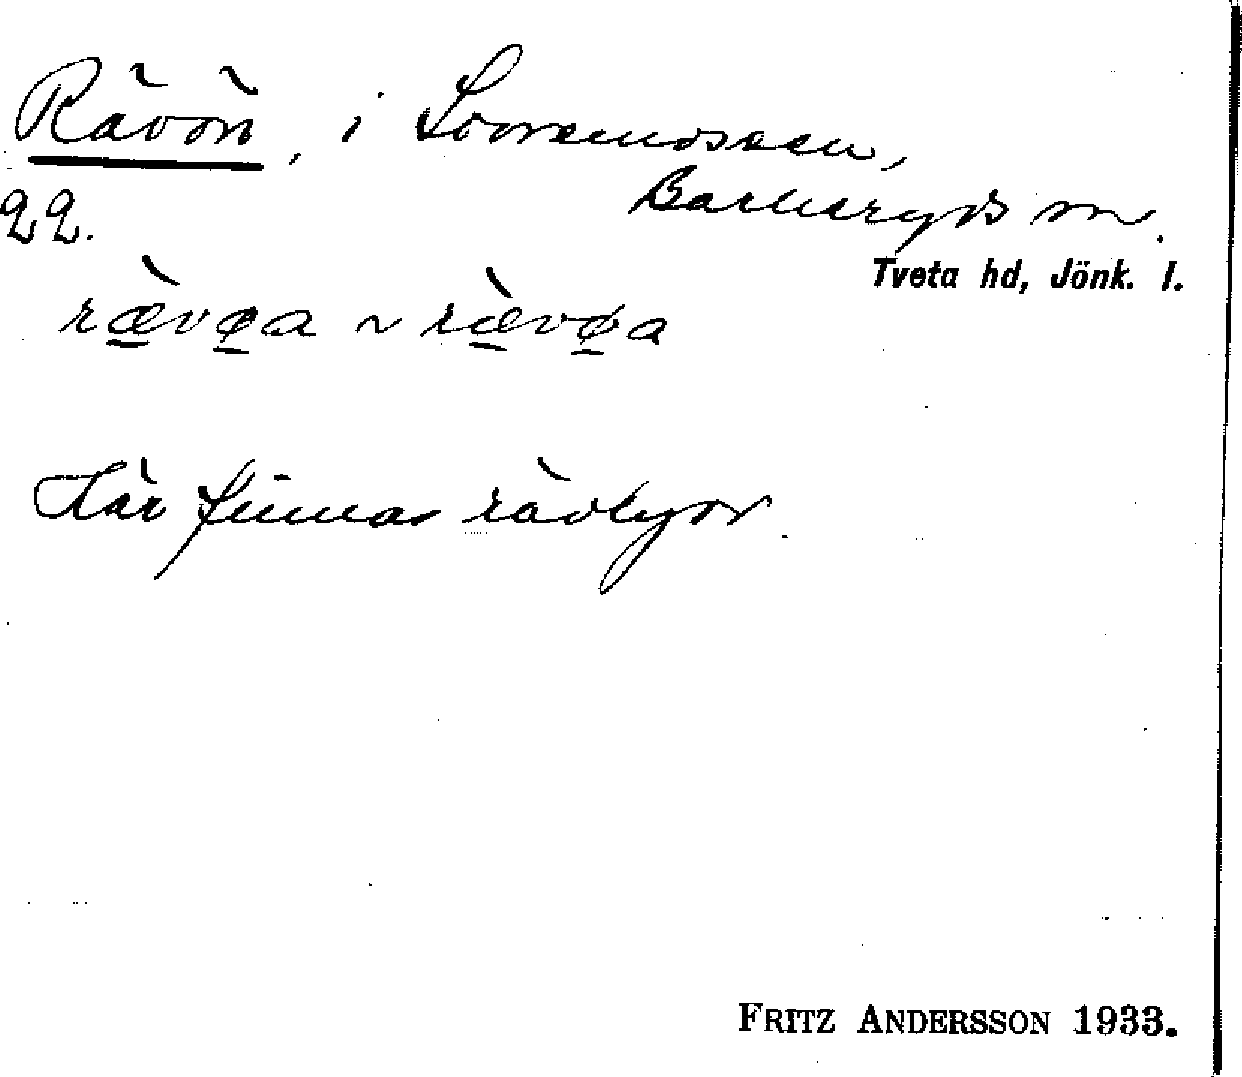 Rävön, i Lovramossen,
Barkeryds sn.
22.
Tveta hd, Jönk. l.
rævøa ~ rævøa
Här finnas rävlyor.
FRITZ ANDERSSON 1933.